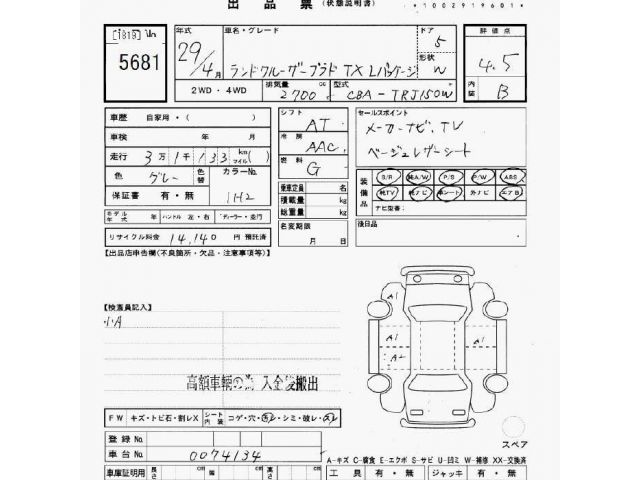 出品票 (状態説明書)
*1002919601*
5681
年式 29/4月
車名・グレード ランドクルーザープラド TX Lパッケージ
ドア 5
形状 W
2WD・4WD
排気量 2700 cc
型式 CBA-TRJ150W
評価点 4.5
内装 B
車歴 自家用・( )
車検 年 月
走行 3万1千133 km マイル( )
色 グレー 色替 カラーNo. 1H2
保証書 有・無
モデル年式 年 ハンドル 左・右 ディーラー・並行
リサイクル料金 14,140 円 預託済
シフト AT
冷房 AAC
燃料 G
乗車定員 名
積載量 kg
総重量 kg
名変期限 月 日
セールスポイント
メーカーナビ、TV
ベージュレザーシート
装備品 S/R 純A/W P/S P/W ABS
純TV 純ナビ 革シート 外ナビ エアB
ナビ型番:
後日品
【出品店申告欄(不良箇所・欠品・注意事項等)】
【検査員記入】
小A
高額車輌の為 入金後搬出
A1
A1
A1
A2
FW キズ・トビ石・割レX シート内装 コゲ・穴・キレ・シミ・破レ・スレ
登録No.
車台No. 0074134
スペア
A-キズ C-腐食 E-エクボ S-サビ U-凹ミ W-補修 XX-交換済
車庫証明用 長さ cm 幅 cm 高さ cm 工具 有・無 ジャッキ 有・無